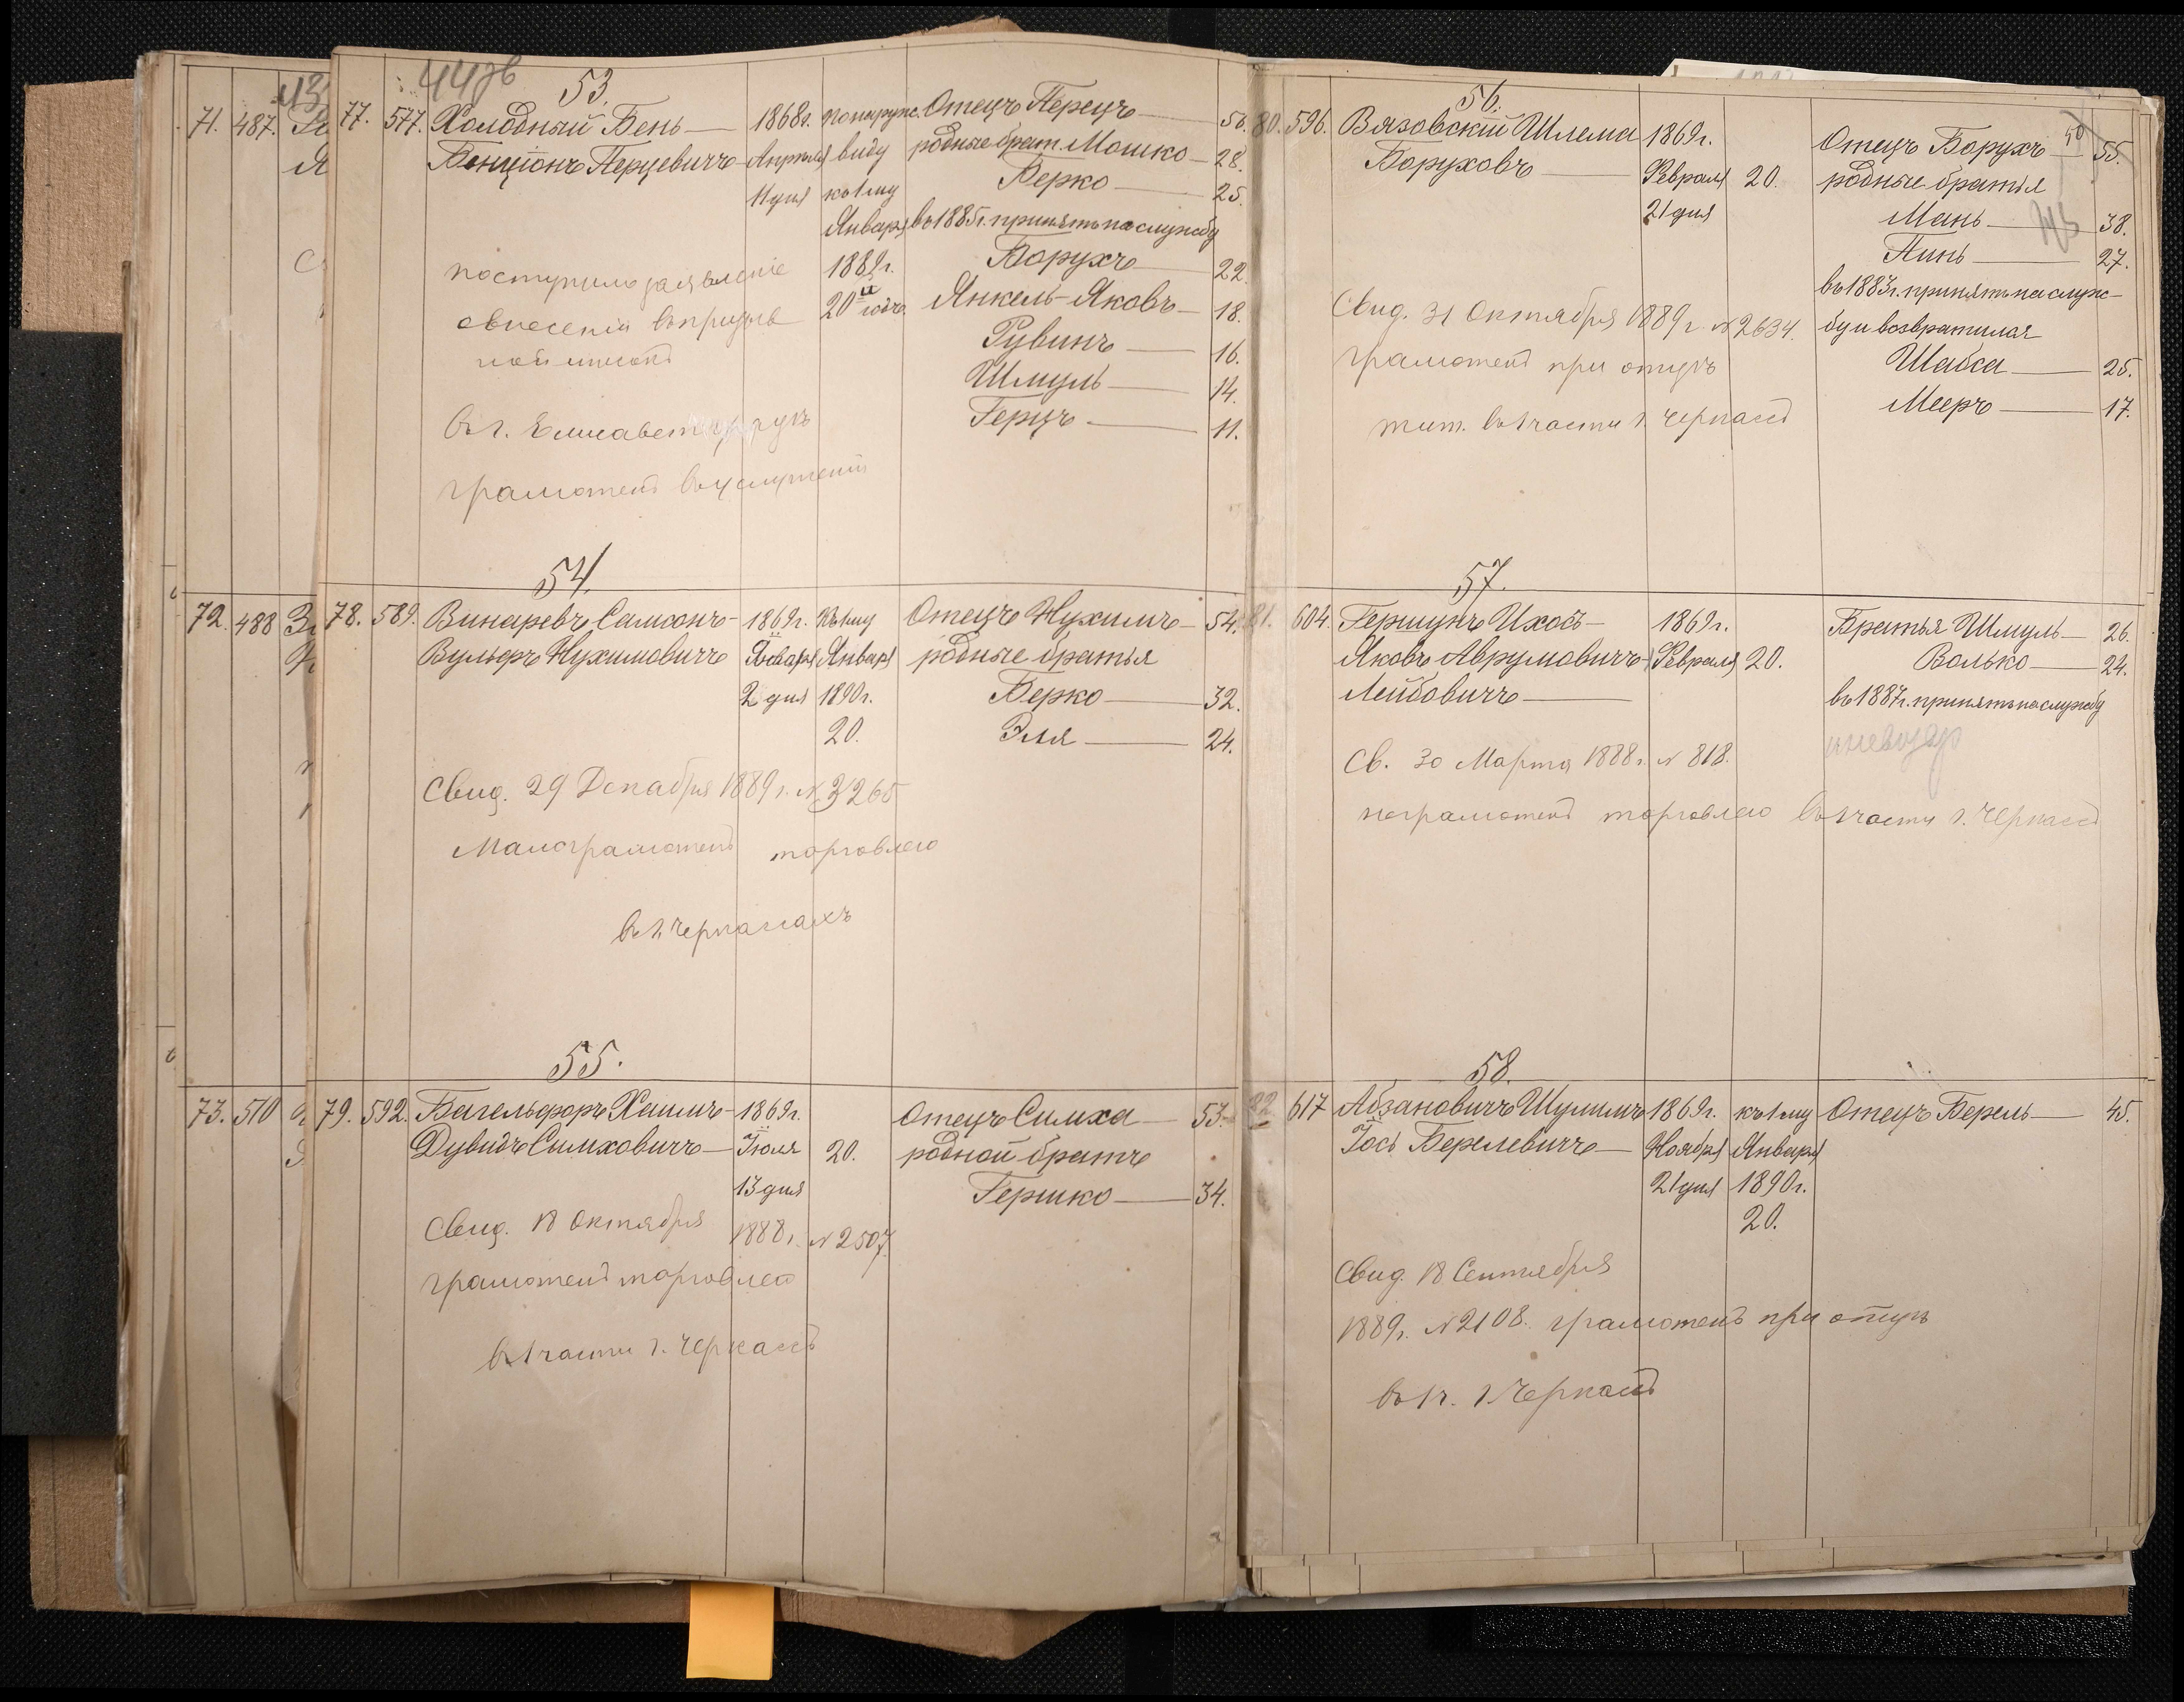 71. 487.
72. 488
73. 510
44 зв
53.
77. 577. Холодный Бень— 1868г. понаружн. Отецъ Перецъ— 56.
Бенціонъ Перцевичъ— Апрѣля виду родные брат. Мошко— 28.
11 дня къ 1му Берко— 25.
Января въ 1885г. принятъ на службу
1889г. Борухъ— 22
20и годъ. Янкель-Яковъ— 18.
Рувинъ— 16.
Шмуль— 14.
Герцъ— 11.
поступило заявленіе
о внесеніи въ призыв
ной списокъ
въ г. Елисавет
грамотенъ въ услуженіи
54.
78. 589. Винаревъ Самсонъ— 1869г. Къ 1му Отецъ Нухимъ— 54.
Вульфъ Нухимовичъ Января Января родные братья
2 дня 1890г. Берко— 32.
20. Эля— 24.
Свид. 29 Декабря 1889 г. № 3265
Малограмотенъ торговлею
въ г. Черкасахъ
55.
79. 592. Вагельфоръ Хаимъ— 1869г. Отецъ Симха— 53.
Дувидъ Симховичъ— Іюля 20. родной братъ
13 дня Гершко— 34.
Свид. 18 Октября 1888 г. № 2507
грамотенъ торговлею
въ 1 части г. Черкассъ
56.
80. 596. Вязовскій Шлема 1869г. Отецъ Борухъ— 50 55.
Боруховъ— Февраля 20. родные братья
21 дня Мань— 38.
Пинь— 27.
въ 1883г. принятъ на служ-
бу и возвратился
Шабса— 25.
Мееръ— 17.
Свид. 31 Октября 1889 г. № 2634.
грамотенъ при отцѣ
жит. въ 1 части г. Черкассъ
57.
81. 604. Гершунъ Ихосъ— 1869г. Братья Шмуль— 26.
Яковъ Аврумовичъ Февраля 20. Волько— 24.
Лейбовичъ— въ 1887г. принятъ на службу
и невозвр
Св. 30 Марта 1888 г. № 818.
неграмотенъ торговлею въ 1 части г. Черкассъ
58.
82 617 Абзановичъ Шулимъ 1869г. къ 1му Отецъ Берель— 45.
Іось Берелевичъ— Ноября Января
21 дня 1890г.
20.
Свид. 18 Сентября
1889 г. № 2108. грамотенъ при отцѣ
въ 1 ч. г. Черкассъ